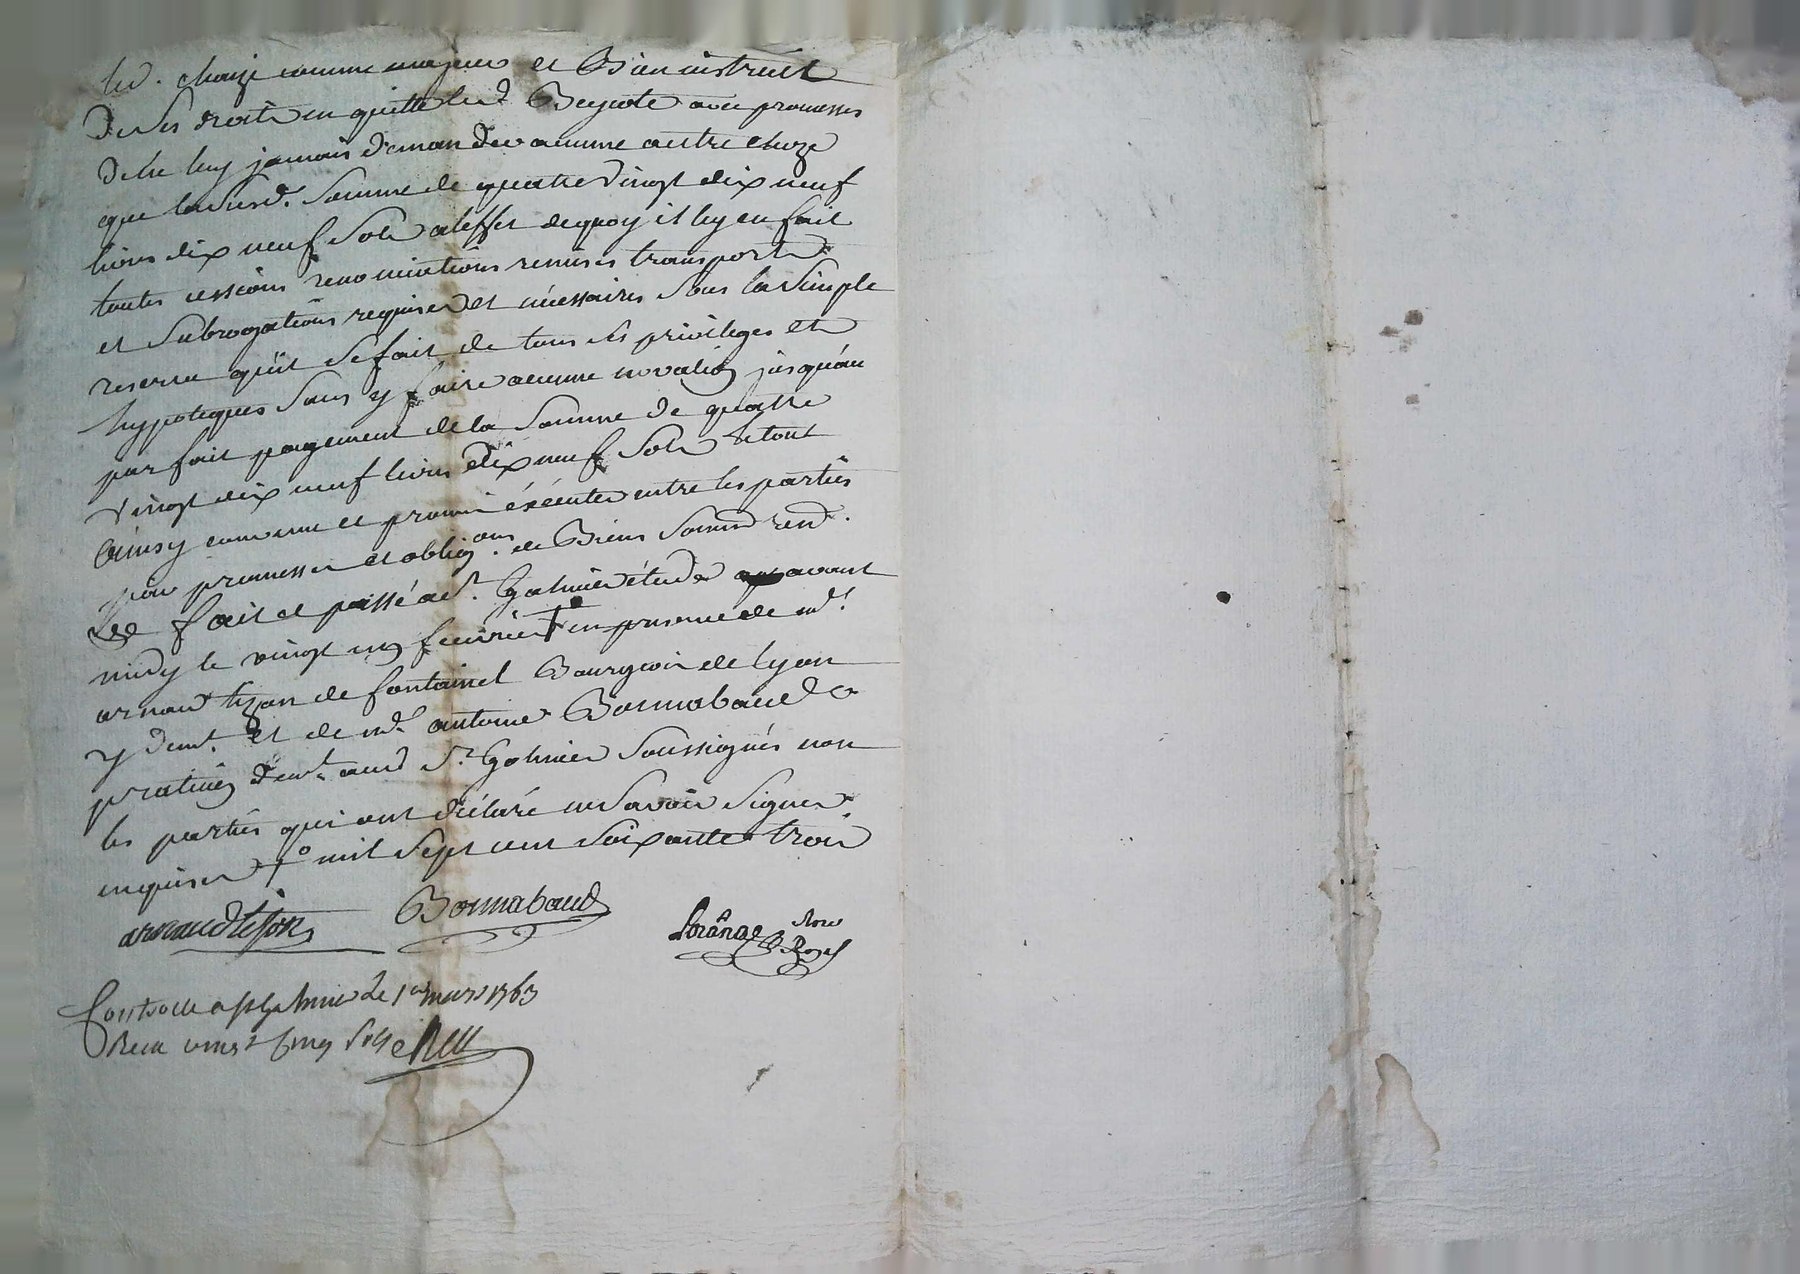 led. chaize comme majeur et Bien instruit
De ses droits en quitte led Beynote avec promesses
de ne luy jamais demander aucune autre choze
que la susd. somme de quatre vingt dix neuf
livres dix neuf sols a leffet de quoy il luy en fait
toutes cessions renonciations remises transports
et subrogations requises et nécessaires sous la simple
reserve quil se fait de tous ses privileges et
hypoteques sans y faire aucune novation jusquau
parfait payement de la somme de quatre
vingt dix neuf livres dix neuf sols et tout
ainsy convenu et promis éxécuter entre les parties
par promesses et oblig.ons de Biens soumis. rend.
fait et passé a st. Galmier étude avant
midy le vingt un fevrier + en presence de mr.
arnaud lizon de fontainel Bourgeois de lyon
y demt. et de mr. antoine Bonnabaud
praticien demt. aud st. Galmier soussignés non
les parties qui ont déclaré ne savoir signer
enquises + mil sept cent soixante trois
arnaud lison Bonnabaud
nore Royal
Controlle a st galmier le 1er mars 1763
Recu vingt cinq sols